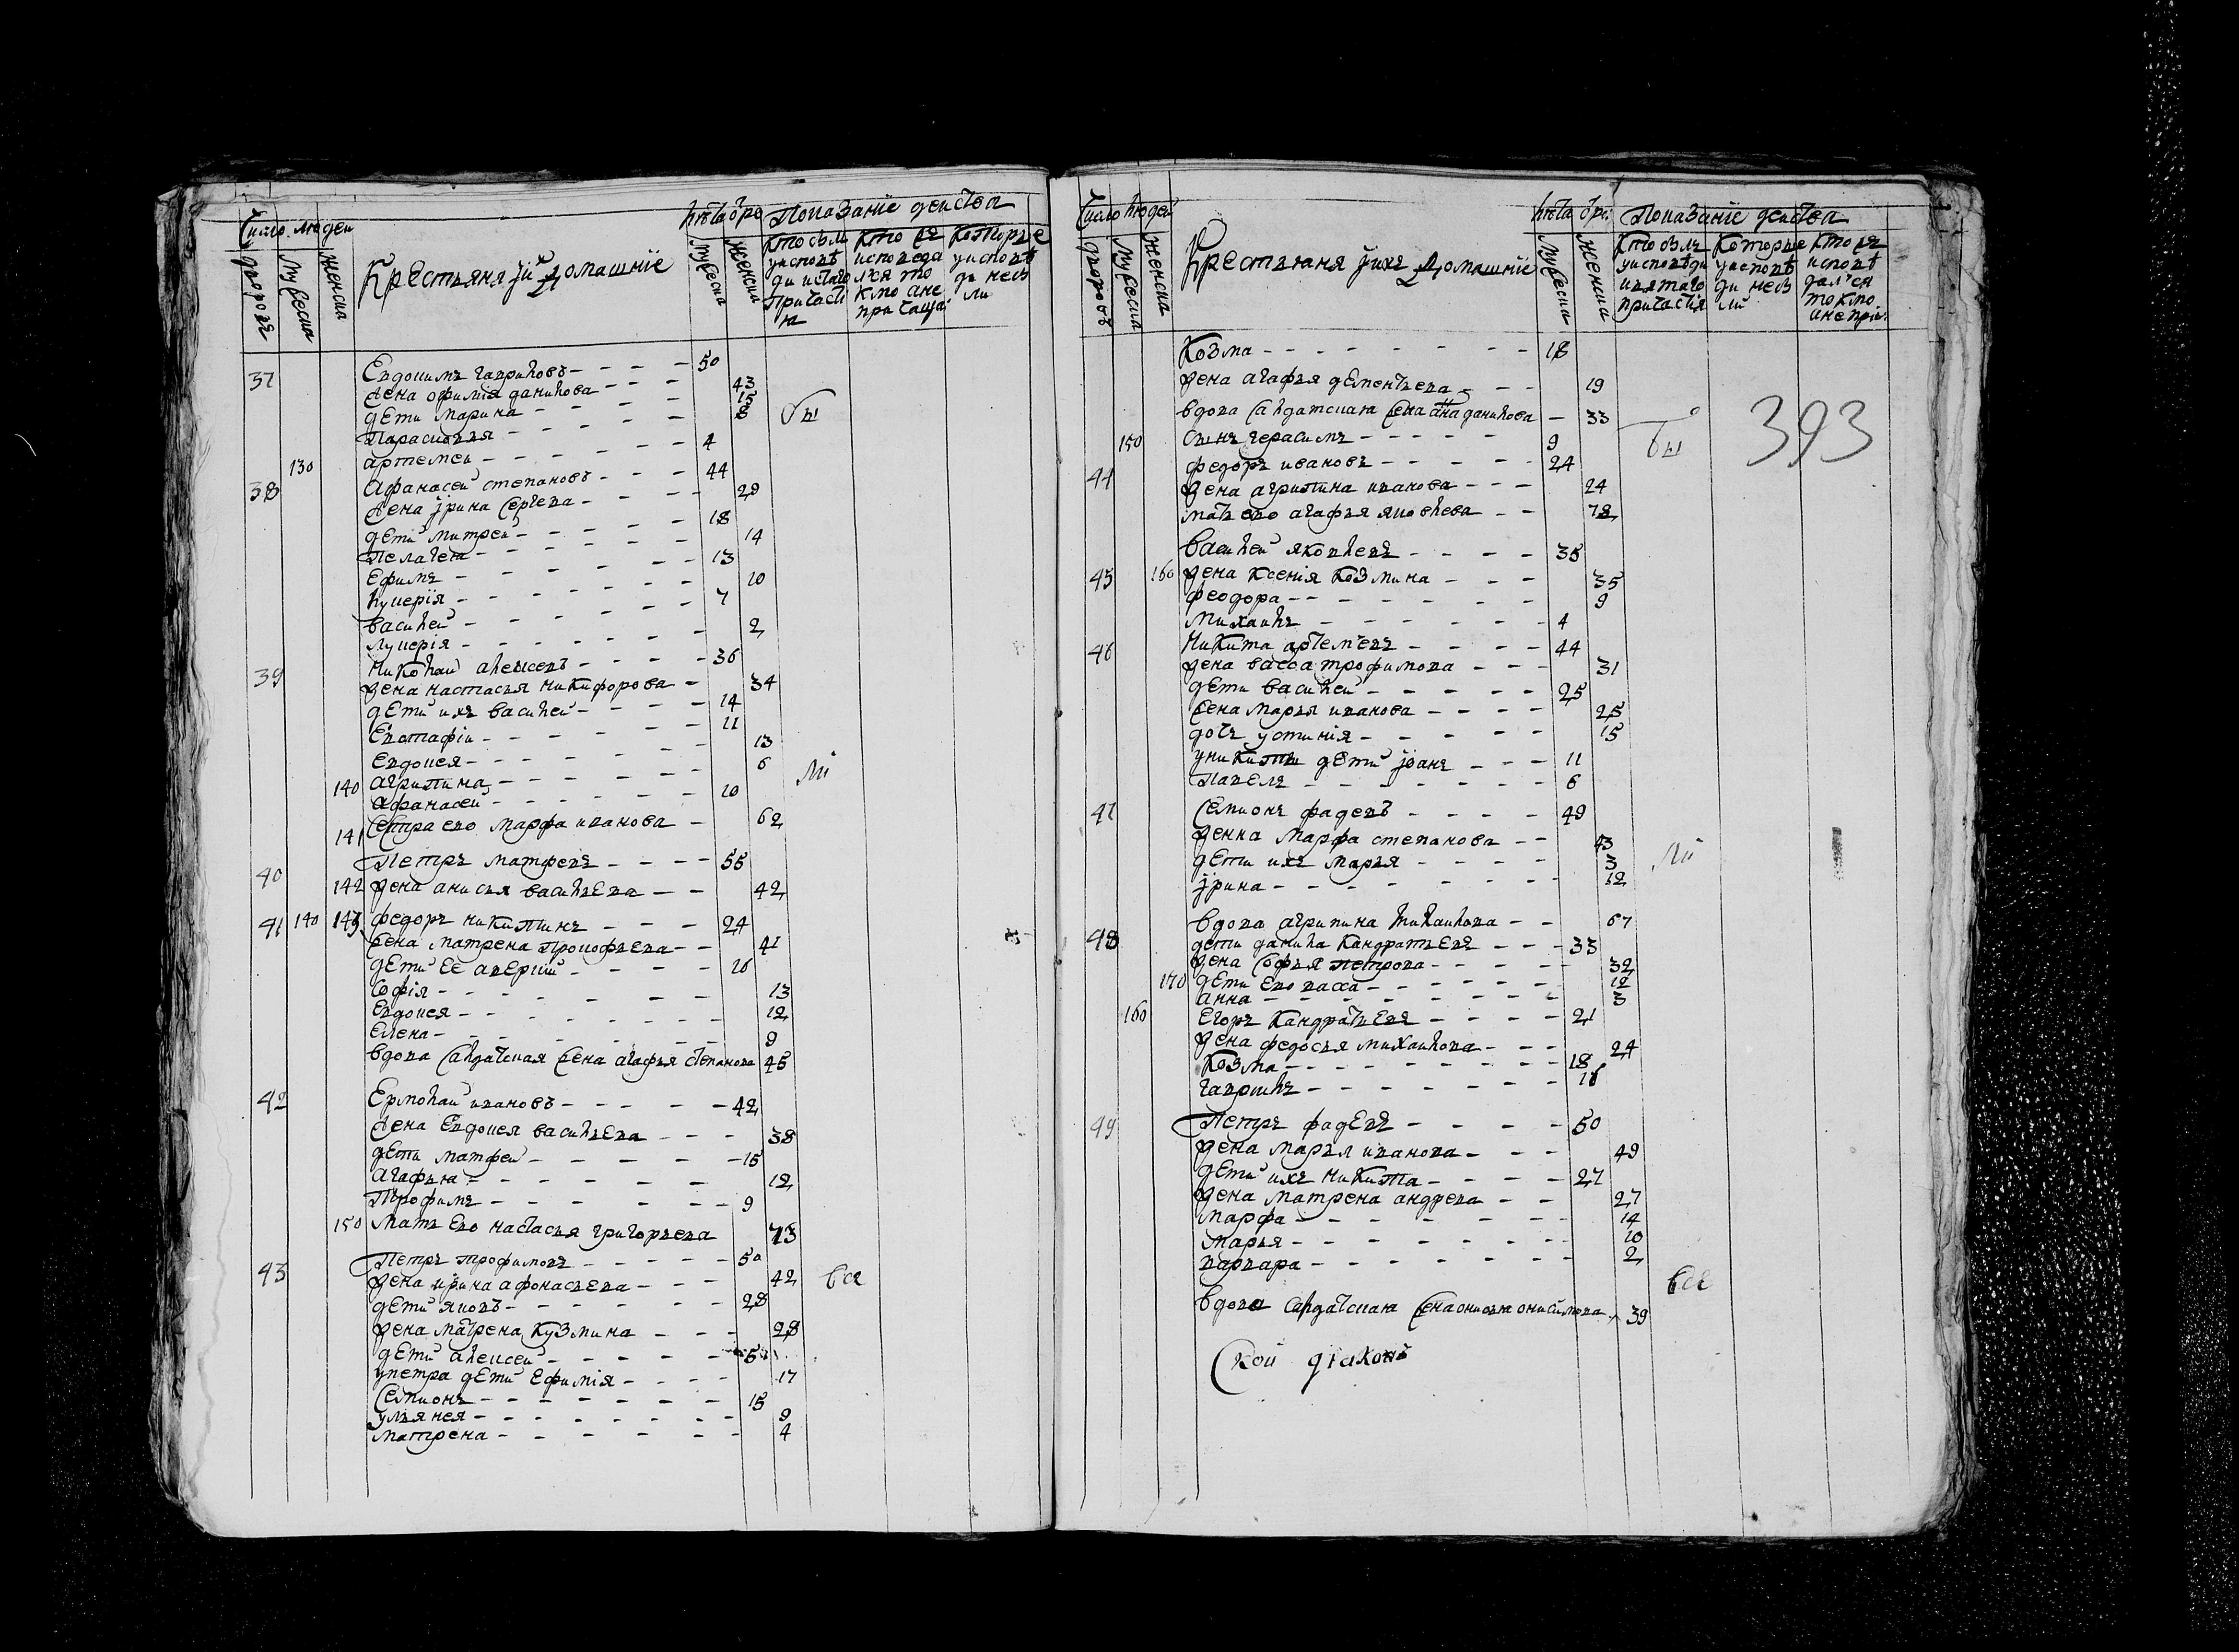 Число людеи
дворовъ
Мужеска
Женска
Крестьяня и ихъ домашніе
Лѣта
Мужеска
Женска
Показаніе
37 Евдокимъ Гавриловъ - - - - 50
Жена Офимія данилова - - - 43
дети Марина - - - - 15
Парасковья - - - - 8
артемеи - - - - 4
Бы
130
38 Афанасеи степановъ - - - 44
Жена Ірина Сергева - - - 29
дети митреи - - - - 18
Пелагея - - - - 14
Ефимъ - - - - 13
Лукерія - - - - 10
Василеи - - - - 7
Лукерія - - - - 2
39 Николаи алексевъ - - - - 36
Жена настасья никифорова - 34
дети ихъ Василеи - - - - 14
Евстафіи - - - - 11
Евдокея - - - - 13
140 агрипина - - - - 6
Афанасеи - - - - 10
ли
141 Сестра ево марфа иванова - 62
40 Петръ матфевъ - - - - 55
142 Жена анисья васильева - - 42
41 140 143 федоръ никитинъ - - - 24
Жена матрена Прокофьева - - 41
дети ее аверкии - - - - 16
Софія - - - - 13
Евдокея - - - - 12
Елена - - - - 9
вдова Салдатская Жена агафья степанова 45
42 Ермолаи ивановъ - - - - 42
Жена Евдокея васильева - - - 38
дети матфеи - - - - 15
Агафья - - - - 12
Трофимъ - - - - 9
150 Мать Ево настасья григорьева 73
43 Петръ трофимовъ - - - - 50
Жена ирина афонасьева - - - 42
дети яковъ - - - - 28
Жена матрена Кузмина - - - 28
дети алексеи - - - - 5
упетра дети Ефимія - - - - 17
Семионъ - - - - 15
ульянея - - - - 9
матрена - - - - 4
Все
Число людеи
дворовъ
Мужеска
Женска
Крестьяня и ихъ домашніе
Лѣта
Мужеска
Женска
Показаніе
393
Козма - - - - 18
Жена агафья дементьева - - - 19
вдова Салдатская Жена анна данилова - 33
150 Сынъ герасимъ - - - - 9
Бы
44 федоръ ивановъ - - - - 24
Жена агрипина иванова - - - 24
мать ево агафья яковлева - - 78
45 Василеи яковлевъ - - - - 35
160 Жена Ксенія Козмина - - - 35
феодора - - - - 9
Михаилъ - - - - 4
46 Никита артемъевъ - - - - 44
Жена васса трофимова - - - 31
дети василеи - - - - 25
Жена марья иванова - - - - 25
дочь устинія - - - - 15
уникиты дети Іоанъ - - - 11
Павелъ - - - - 6
47 Семионъ фадевъ - - - - 49
Женна марфа степанова - - 43
дети ихъ марья - - - - 3
Ірина - - - - 12
ли
48 вдова агрипина михаилова - - 67
дети данила Кандратьевъ - - - 33
Жена Софья петрова - - - - 32
170 дети Ево васса - - - - 12
анна - - - - 3
160 Егоръ Кандратьевъ - - - - 21
Жена федосья михаилова - - - 24
Козма - - - - 18
гаврилъ - - - - 16
49 Петръ фадевъ - - - - 50
Жена марья иванова - - - 49
дети ихъ никита - - - - 27
Жена матрена андрева - - 27
марфа - - - - 14
марья - - - - 10
варвара - - - - 2
Все
39
Скои діаконъ